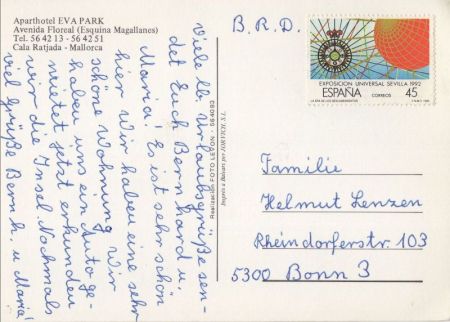 Aparthotel EVA PARK
Avenida Floreal (Esquina Magallanes)
Tel. 56 42 13 - 56 42 51
Cala Ratjada - Mallorca
Viele lb. Urlaubsgrüße sen-
det Euch Bernhard u.
Maria! Es ist sehr schön
hier. Wir haben eine sehr
schöne Wohnung. Wir
haben uns ein Auto ge-
mietet jetzt erkunden
wir die Insel. Nochmals
viel Grüße Bernh. u. Maria!
Realización FOTO LEVON - 564083
B.R.D.
EXPOSICION UNIVERSAL SEVILLA 1992
ESPAÑA
CORREOS
45
LA ERA DE LOS DESCUBRIMIENTOS
Familie
Helmut Lenzen
Rheindorferstr. 103
5300 Bonn 3